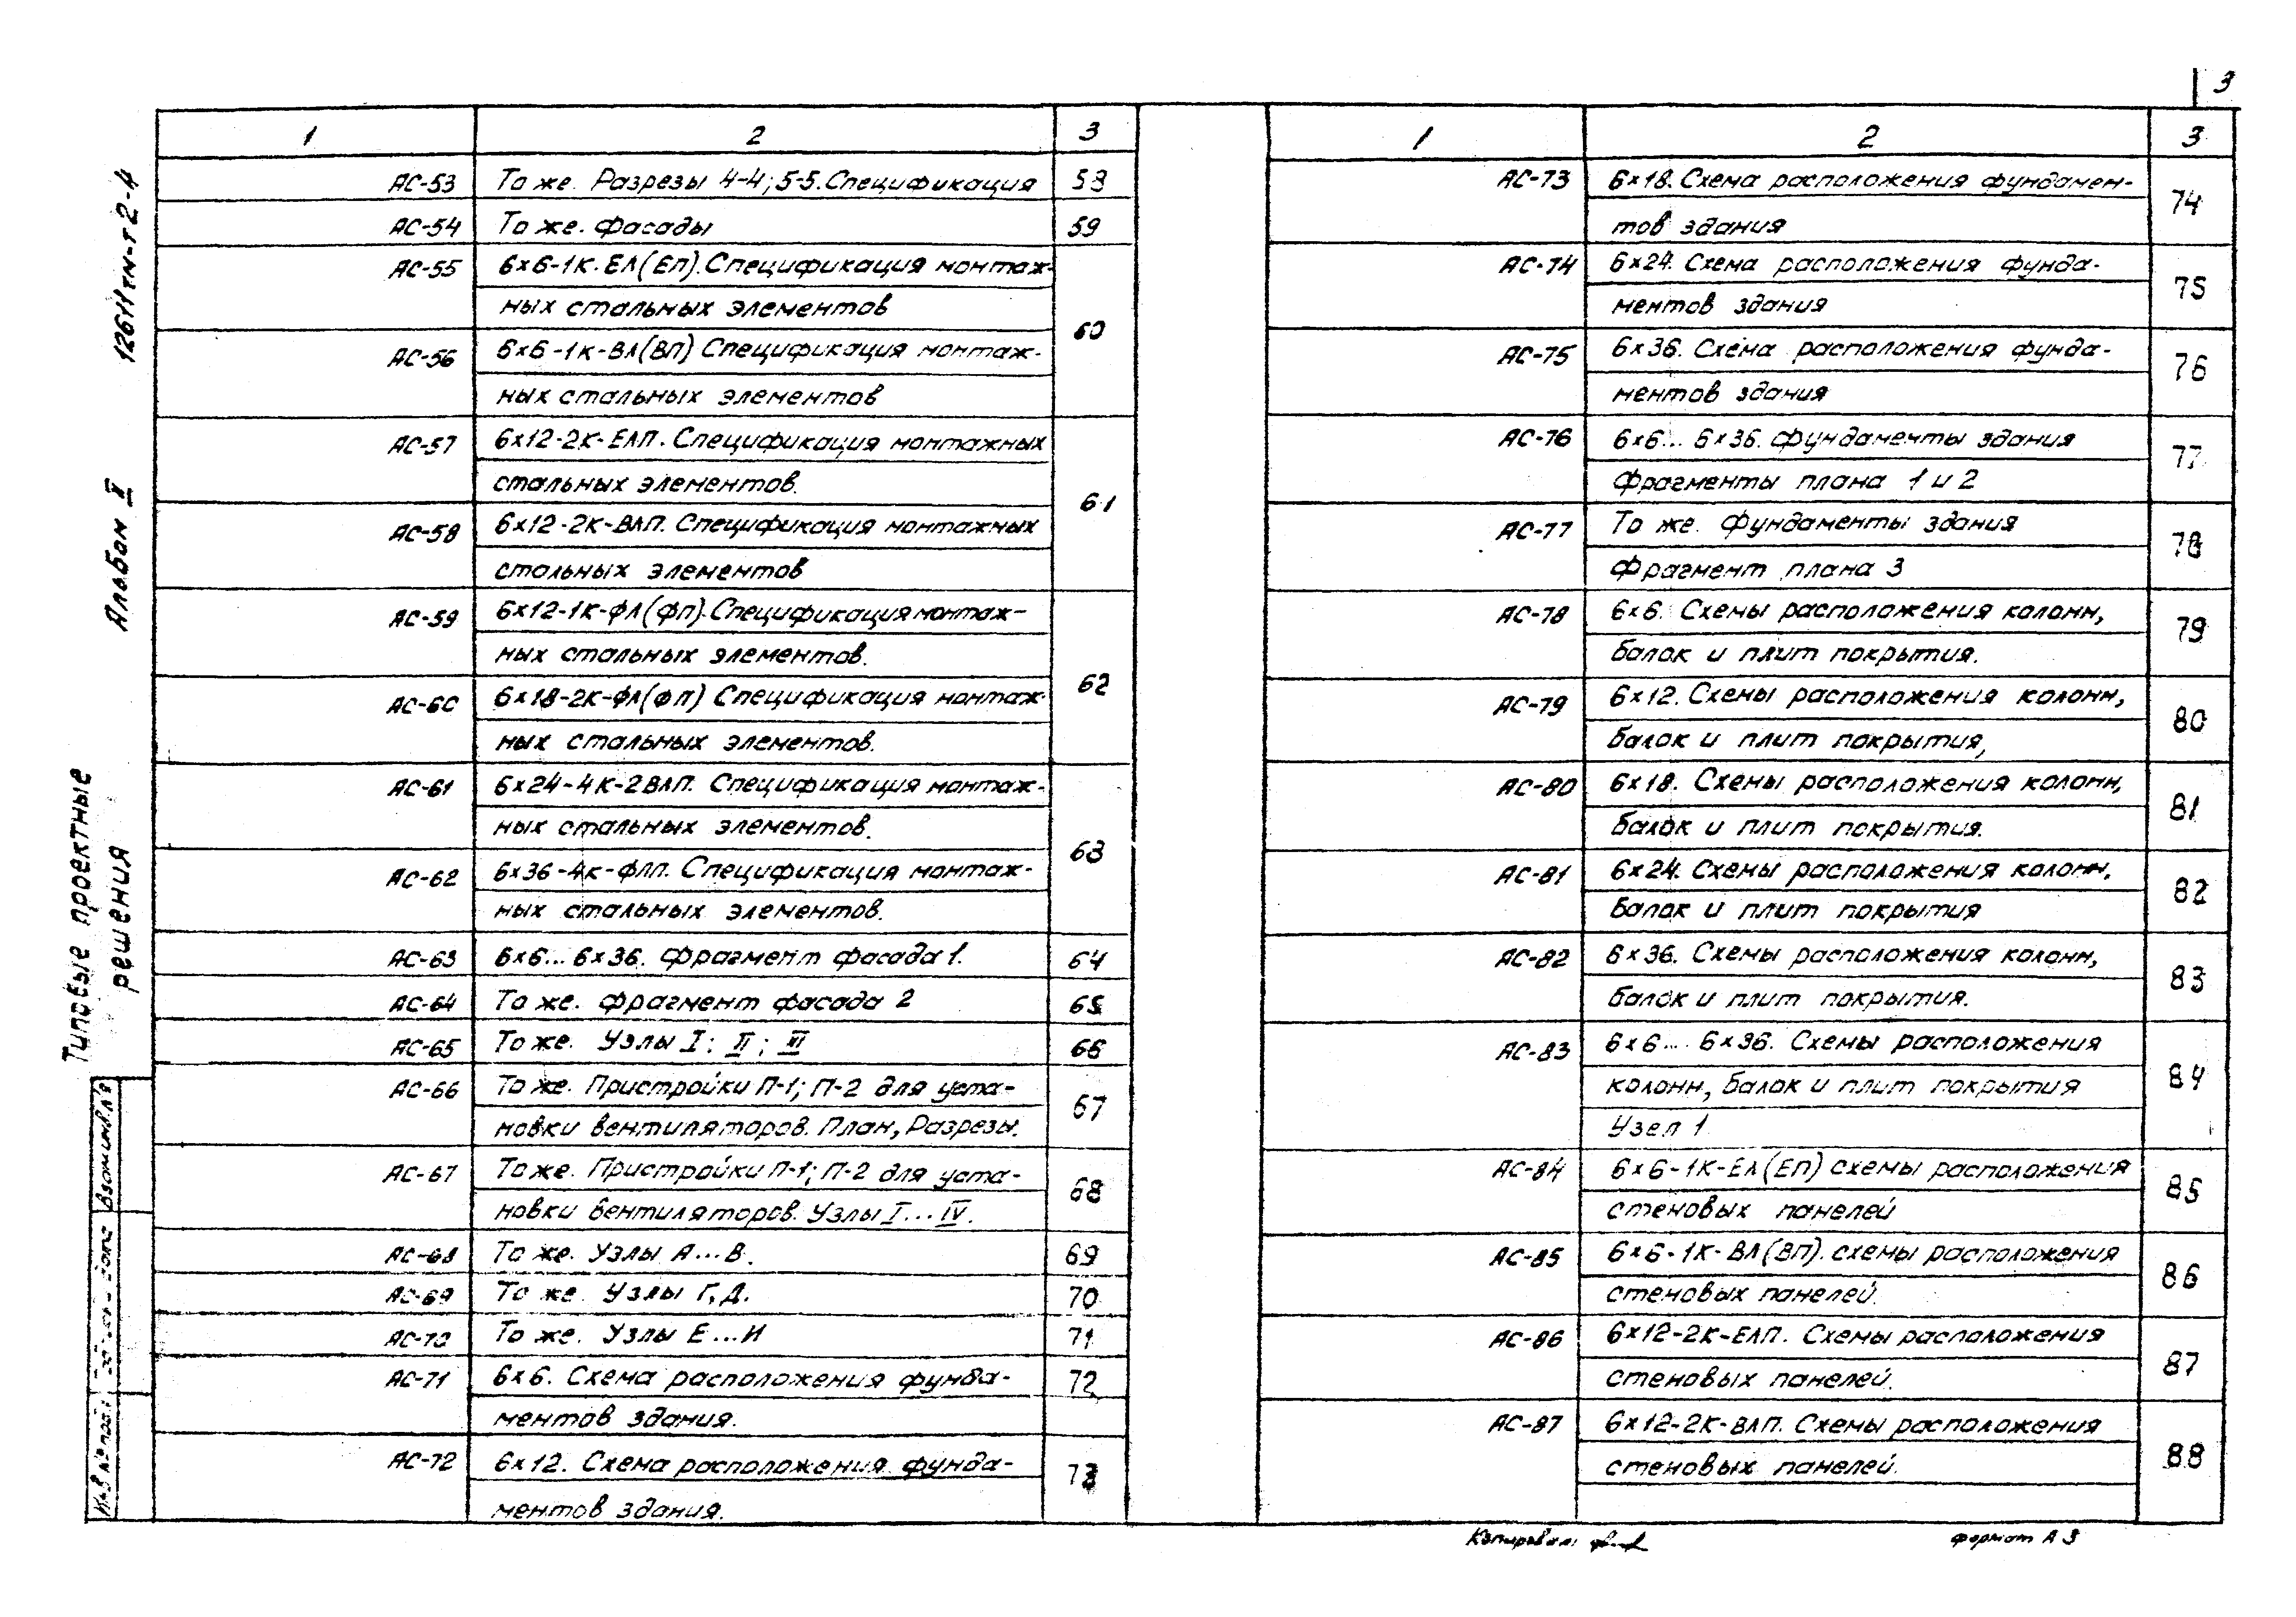 3
1 2 3
АС-53 То же. Разрезы 4-4; 5-5. Спецификация 58
АС-54 То же. Фасады 59
АС-55 6х6-1К-ЕЛ(ЕП). Спецификация монтаж-
ных стальных элементов
60
АС-56 6х6-1К-ВЛ(ВП) Спецификация монтаж-
ных стальных элементов
АС-57 6х12-2К-ЕЛП. Спецификация монтажных
стальных элементов.
61
АС-58 6х12-2К-ВЛП. Спецификация монтажных
стальных элементов
АС-59 6х12-1К-ФЛ(ФП). Спецификация монтаж-
ных стальных элементов.
62
АС-60 6х18-2К-ФЛ(ФП) Спецификация монтаж-
ных стальных элементов.
АС-61 6х24-4К-2ВЛП. Спецификация монтаж-
ных стальных элементов.
63
АС-62 6х36-4К-ФЛП. Спецификация монтаж-
ных стальных элементов.
АС-63 6х6... 6х36. Фрагмент фасада 1. 64
АС-64 То же. Фрагмент фасада 2 65
АС-65 То же. Узлы I; II; III 66
АС-66 То же. Пристройки П-1; П-2 для уста-
новки вентиляторов. План, Разрезы. 67
АС-67 То же. Пристройки П-1; П-2 для уста-
новки вентиляторов. Узлы I...IV. 68
АС-68 То же. Узлы А...В. 69
АС-69 То же. Узлы Г, Д. 70
АС-70 То же. Узлы Е...И 71
АС-71 6х6. Схема расположения фунда- 72
ментов здания.
АС-72 6х12. Схема расположения фунда- 73
ментов здания.
1 2 3
АС-73 6х18. Схема расположения фундамен- 74
тов здания
АС-74 6х24. Схема расположения фунда- 75
ментов здания
АС-75 6х36. Схема расположения фунда- 76
ментов здания
АС-76 6х6... 6х36. Фундаменты здания 77
Фрагменты плана 1 и 2
АС-77 То же. Фундаменты здания 78
Фрагмент плана 3
АС-78 6х6. Схемы расположения колонн, 79
балок и плит покрытия.
АС-79 6х12. Схемы расположения колонн, 80
балок и плит покрытия,
АС-80 6х18. Схемы расположения колонн, 81
балок и плит покрытия.
АС-81 6х24. Схемы расположения колонн, 82
балок и плит покрытия
АС-82 6х36. Схемы расположения колонн, 83
балок и плит покрытия.
АС-83 6х6... 6х36. Схемы расположения
колонн, балок и плит покрытия 84
Узел 1
АС-84 6х6-1К-ЕЛ(ЕП) схемы расположения 85
стеновых панелей
АС-85 6х6-1К-ВЛ(ВП). схемы расположения 86
стеновых панелей.
АС-86 6х12-2К-ЕЛП. Схемы расположения 87
стеновых панелей.
АС-87 6х12-2К-ВЛП. Схемы расположения 88
стеновых панелей.
12611тм-т2-4
Альбом II
Типовые проектные
решения
Взам.инв.№
Инв.№ подл.
Копировал:
формат А3